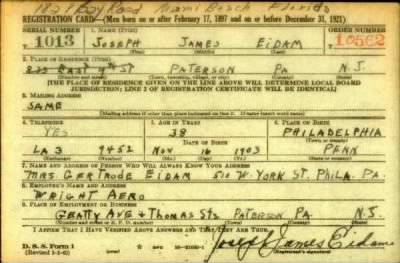 1827 Bay Road Miami Beach Florida
REGISTRATION CARD—(Men born on or after February 17, 1897 and on or before December 31, 1921)
SERIAL NUMBER 1. NAME (Print) ORDER NUMBER
T 1013 JOSEPH JAMES EIDAM 10562
(First) (Middle) (Last)
2. PLACE OF RESIDENCE (Print)
EAST 9th ST PATERSON PA N.J.
(Number and street) (Town, township, village, or city) (County) (State)
[THE PLACE OF RESIDENCE GIVEN ON THE LINE ABOVE WILL DETERMINE LOCAL BOARD
JURISDICTION; LINE 2 OF REGISTRATION CERTIFICATE WILL BE IDENTICAL]
3. MAILING ADDRESS
SAME
[Mailing address if other than place indicated on line 2. If same insert word same]
4. TELEPHONE 5. AGE IN YEARS 6. PLACE OF BIRTH
YES 38 PHILADELPHIA
DATE OF BIRTH (Town or county)
LA 3 9452 NOV 16 1903 PENN
(Exchange) (Number) (Mo.) (Day) (Yr.) (State or country)
7. NAME AND ADDRESS OF PERSON WHO WILL ALWAYS KNOW YOUR ADDRESS
MRS. GERTRUDE EIDAM 510 W. YORK ST. PHILA. PA.
8. EMPLOYER'S NAME AND ADDRESS
WRIGHT AERO
9. PLACE OF EMPLOYMENT OR BUSINESS
GETTY AVE & THOMAS STS PATERSON PA N.J.
(Number and street or R. F. D. number) (Town) (County) (State)
I AFFIRM THAT I HAVE VERIFIED ABOVE ANSWERS AND THAT THEY ARE TRUE.
D. S. S. Form 1
(Revised 1-1-42) Joseph James Eidam